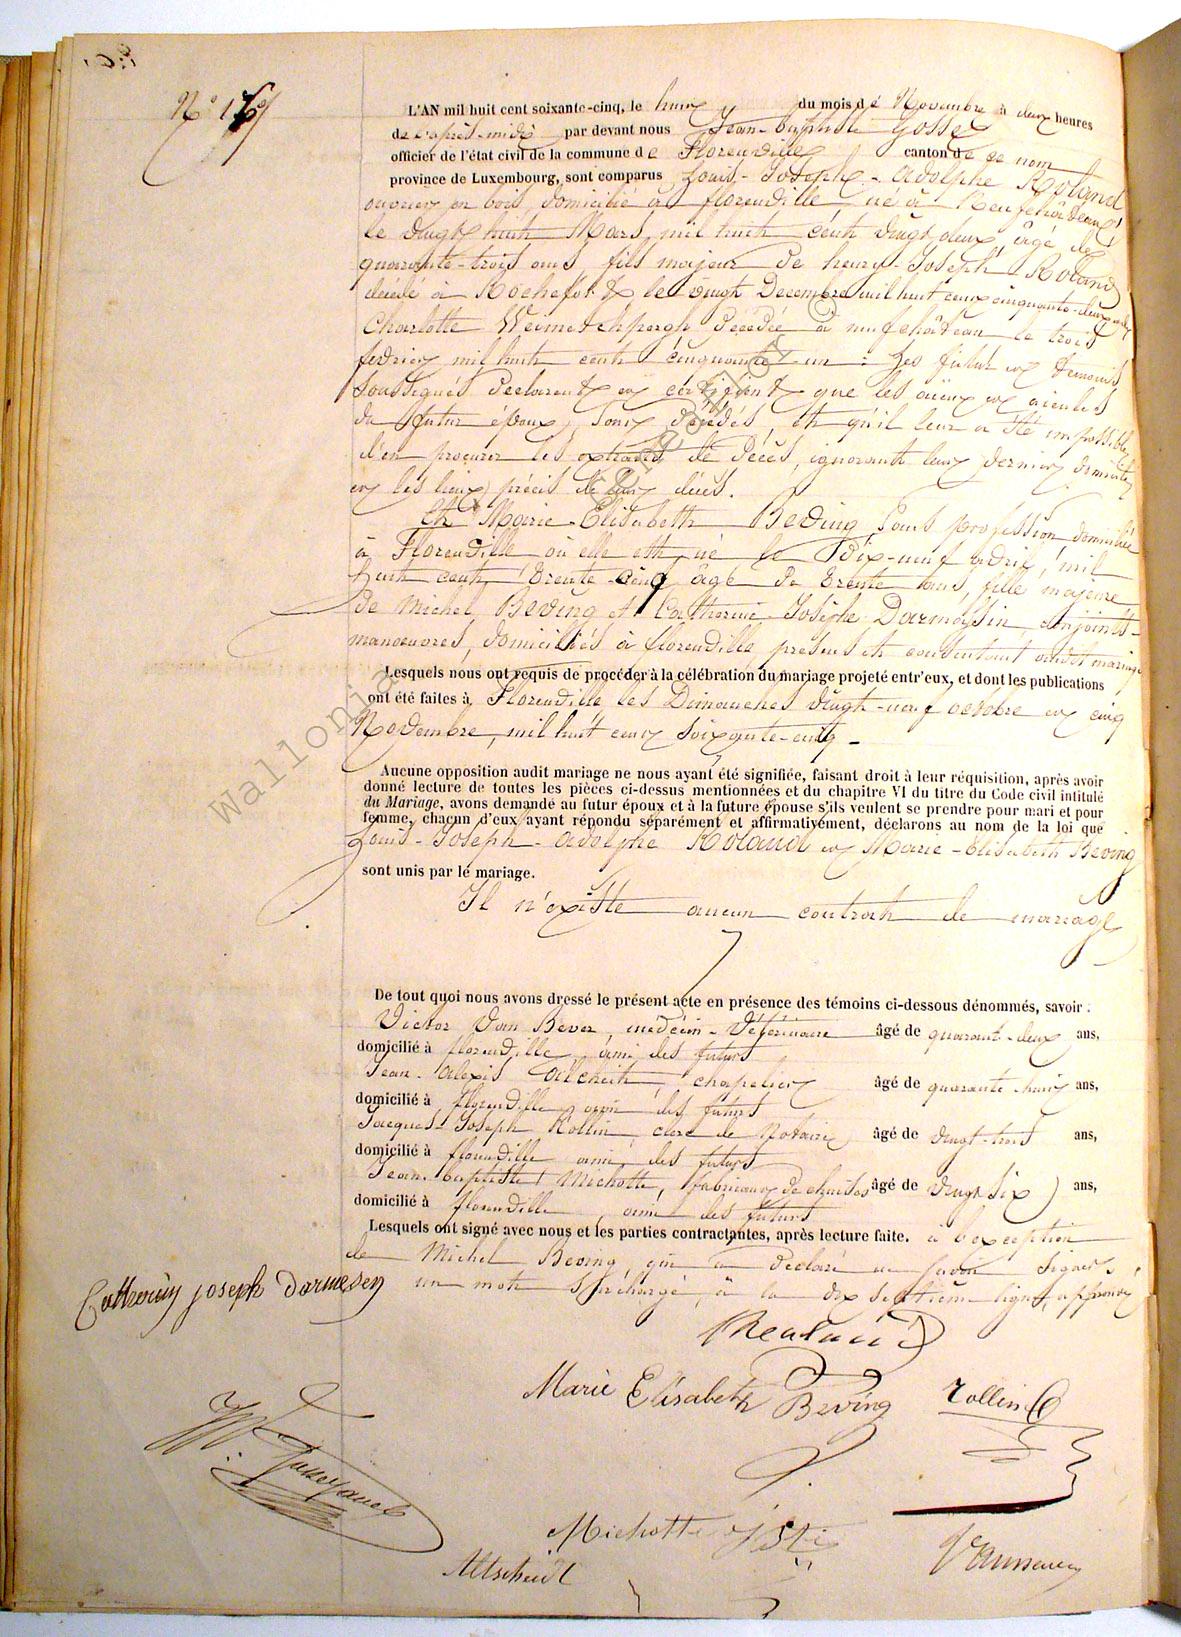 L'AN mil huit cent soixante-cinq, le huit du mois de Novembre à deux heures
de l'après-midi par devant nous Jean-baptiste Gosse
officier de l'état civil de la commune de Florenville canton de ce nom
province de Luxembourg, sont comparus Louis-Joseph-Adolphe Roland
ouvrier en bois, domicilié à florenville, né à Neufchâteau,
le vingt huit Mars, mil huit cent vingt deux, âgé de
quarante-trois ans fils majeur de henry-Joseph Roland
décédé à Rochefort le vingt Decembre mil huit cent cinquante-deux
Charlotte décédée à neufchâteau le trois
fevrier mil huit cent cinquante-un : Les futur et temoins
soussignés declarent et certifient que les aïeux et aieules
du futur époux, sont décédés, et qu'il leur a été impossible
d'en procurer les extraits de décès, ignorant leur dernier domicile
et les lieux précis de leur décès.
Et Marie-Elisabeth Beving, sans profession, domiciliée
à Florenville où elle est né le dix-neuf avril, mil
huit cent trente-cinq âgé de trente ans, fille majeure
de Michel Beving et Catherine-Josèphe Darmasin, conjoints-
manoeuvres, domiciliés à florenville, présens et consentant audit mariage
Lesquels nous ont requis de procéder à la célébration du mariage projeté entr'eux, et dont les publications
ont été faites à Florenville les Dimanches vingt-neuf octobre et cinq
Novembre, mil huit cent soixante-cinq -
Aucune opposition audit mariage ne nous ayant été signifiée, faisant droit à leur réquisition, après avoir
donné lecture de toutes les pièces ci-dessus mentionnées et du chapitre VI du titre du Code civil intitulé
du Mariage, avons demandé au futur époux et à la future épouse s'ils veulent se prendre pour mari et pour
femme, chacun d'eux ayant répondu séparément et affirmativement, déclarons au nom de la loi que
Louis-Joseph-Adolphe Roland et Marie-Elisabeth Beving
sont unis par le mariage.
Il n'existe aucun contrat de mariage
De tout quoi nous avons dressé le présent acte en présence des témoins ci-dessous dénommés, savoir :
Victor Van Bever, médecin-Vétérinaire âgé de quarante-deux ans,
domicilié à florenville, ami des futurs
Jean-Alexis chapelier âgé de quarante huit ans,
domicilié à florenville ami des futurs
Jacques-Joseph Rollin, clerc de Notaire âgé de vingt-trois ans,
domicilié à florenville ami des futurs
Jean-baptiste Michotte, fabricant de chaises âgé de vingt six ans,
domicilié à florenville, ami des futurs
Lesquels ont signé avec nous et les parties contractantes, après lecture faite. à l'exception
de Michel Beving, qui a déclaré ne savoir signer,
un mot surchargé, à la dix septième ligne, approuvé
Catherein joseph darmesen
Marie Elisabeth Beving
Rollin
Michotte
Altscheidt
wallonia